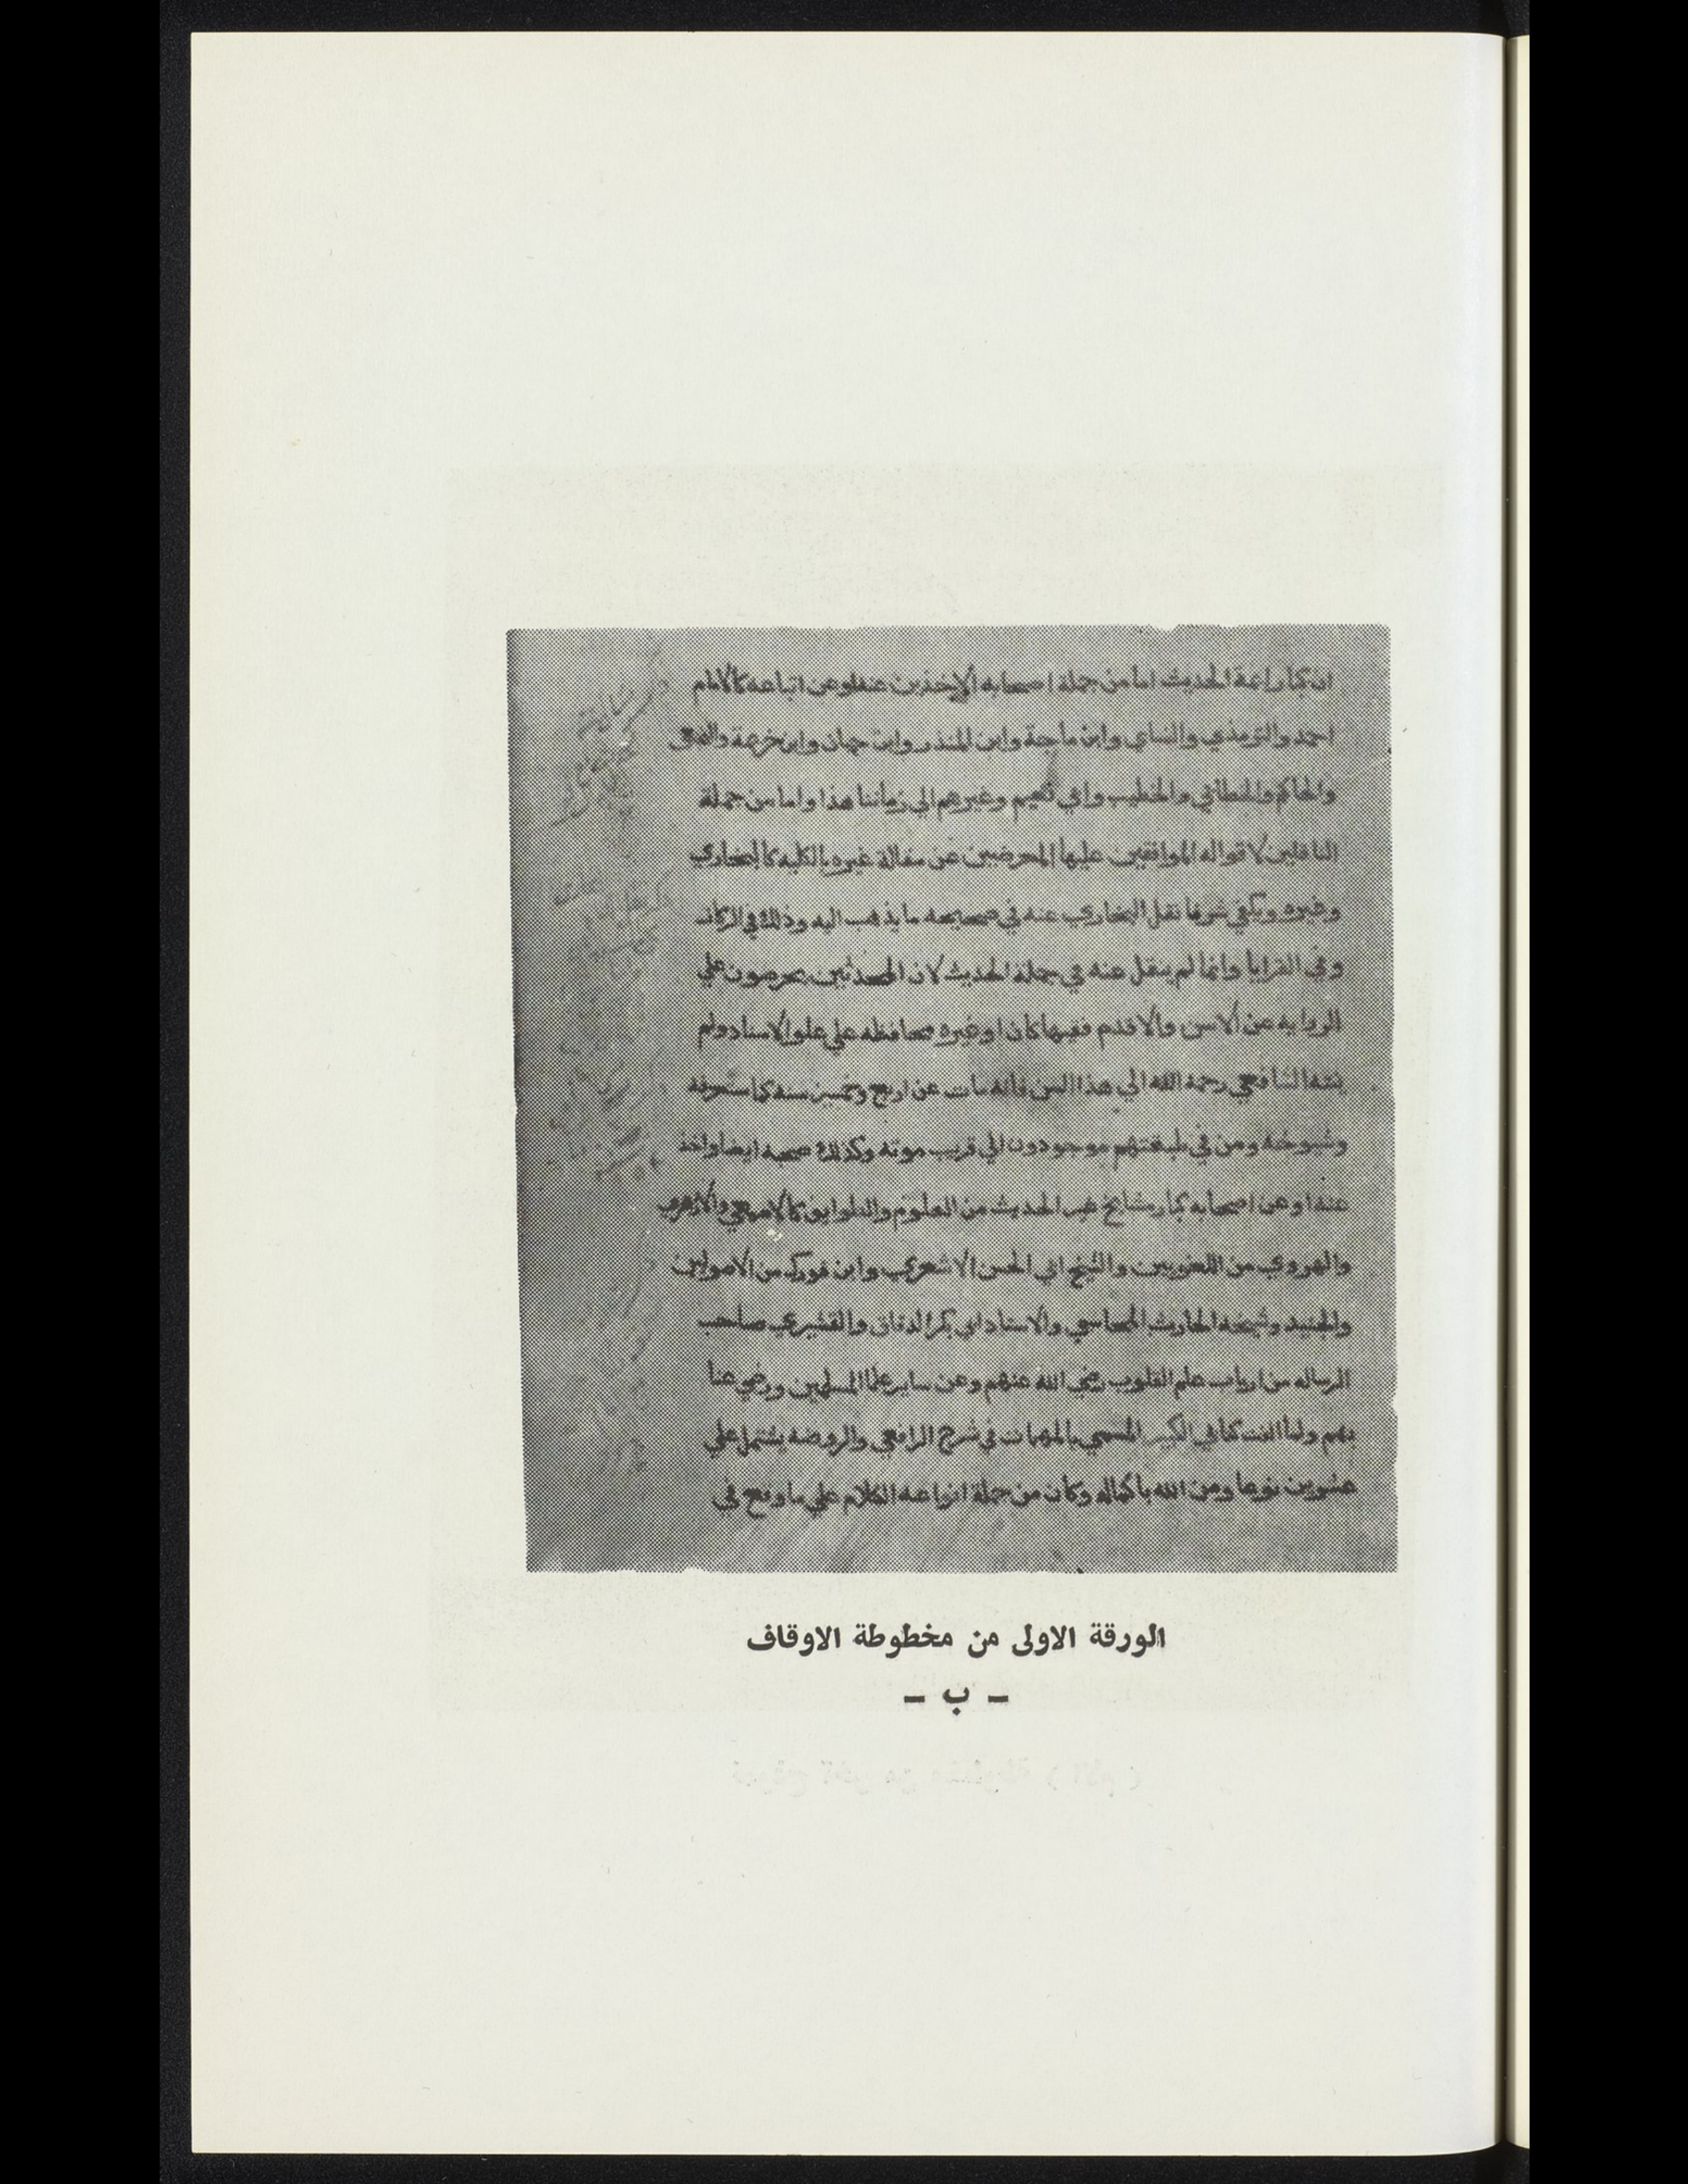 ان كبار ائمة الحديث اما من جملة اصحابه الاخذين عنه او عن اتباعه كالامام
احمد والترمذي والنساي وابن ماجة وابن المنذر وابن حبان وابن خزيمة والبيهقي
والحاكم والخطابي والخطيب وابي نعيم وغيرهم الي زماننا هذا واما من جملة
الناقلين لاقواله الموافقين عليها المعرضين عن مقالة غيره بالكليه كالبخاري
وغيره ويكفي شرفا نقل البخاري عنه في صحيحه ما يذهب اليه وذلك في الركاز
وفي العرايا وانما لم ينقل عنه في جملة الحديث لان المحدثين يحرصون علي
الروايه عن الاسن والاقدم فقيها كان او غيره محافظه علي علو الاسناد ولم
ينته الشافعي رحمه الله الي هذا السن فانه مات عن اربع وخمسين سنه كما ستعرفه
وشيوخه ومن في طبقتهم موجودون الي قريب موته وكذلك صحبه ايضا واخذ
عنه او عن اصحابه كبار مشايخ غير الحديث من العلوم والطوايف كالاصمعي والازهري
والهروي من اللغويين والشيخ ابي الحسن الاشعري وابن فورك من الاصوليين
والجنيد وشيخه الحارث المحاسبي والاستاذ ابي بكر الدقاق والقشيري صاحب
الرساله من ارباب علم القلوب رضي الله عنهم وعن ساير علما المسلمين ورضي عنا
بهم ولما الفت كتابي الكبير المسمي بالمهمات في شرح الرافعي والروضه يشتمل علي
عشرين نوعا ومن الله باكماله وكان من جملة انواعه الكلام علي ما وقع في
الورقة الاولى من مخطوطة الاوقاف
– ب –